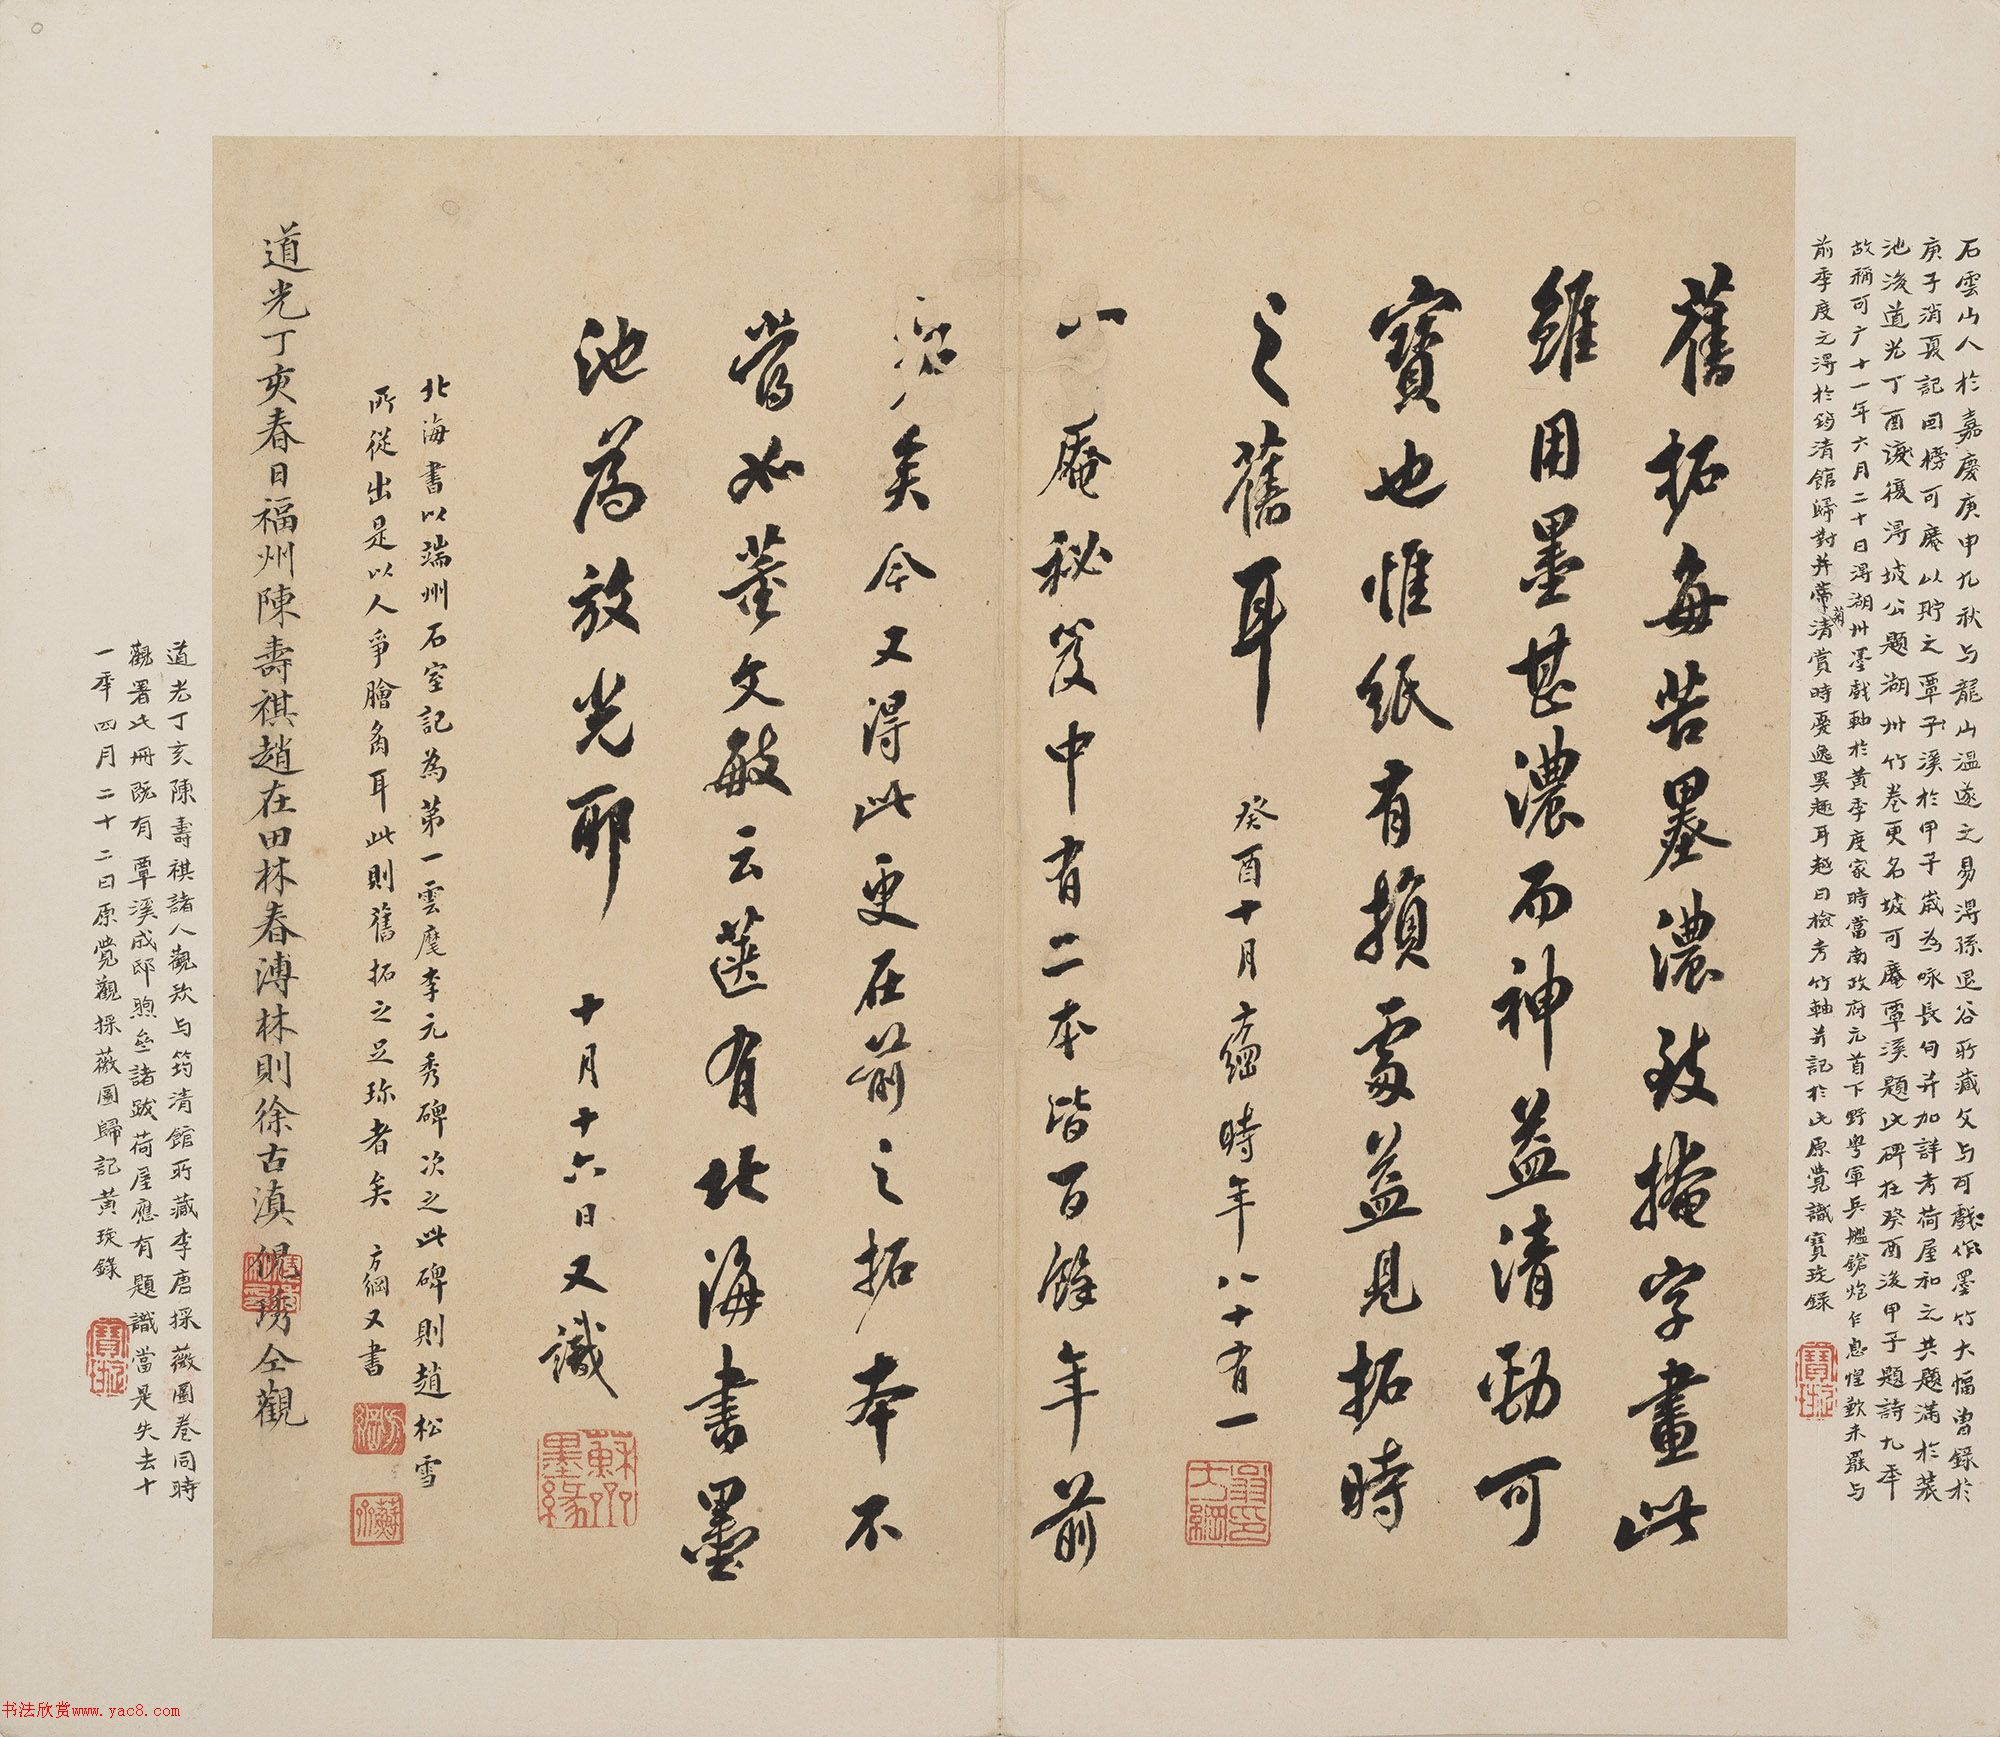 石雲山人於嘉慶庚申九秋与龍山溫遂之易得孫退谷所藏文与可戲作墨竹大幅曾錄於
庚子消夏記回榜可庵以貯之覃子溪於甲子歲為咏長句并加詳考荷屋和之共題滿於裝
池後道光丁酉復得坡公題湖州竹卷更名坡可庵覃溪題此碑在癸酉後甲子題詩九年
故稱可庵十一年六月二十日得湖州墨戲軸於黃季度家時當南政府元首下野粵軍兵艦鎗炮乍息惶歎未罷与
前季度之得於筠清館歸對并蒂菊清賞時憂逸異趣耳越日檢考竹軸并記於此原覺識寶珖錄
舊拓每苦墨濃致掩字畫此
雖用墨甚濃而神益清勁可
寶也惟紙有損處益見拓時
之舊耳
癸酉十月方綱時年八十有一
翁方綱印
蘇庵秘笈中有二本皆百餘年前
矣今又得此更在前之拓本不
當如董文敏云篋有北海書墨
池為放光耶
十月十六日又識
蘇州墨緣
北海書以端州石室記為第一雲麾李元秀碑次之此碑則趙松雪
所從出是以人爭膾炙耳此則舊拓之足珍者矣 方綱又書
方綱
道光丁亥春日福州陳壽祺趙在田林春溥林則徐古滇倪琇仝觀
道光丁亥陳壽祺諸人觀款与筠清館所藏李唐採薇圖卷同時
觀署此冊既有覃溪成邸煦堂諸跋荷屋應有題識當是失去十
一年四月二十二日原覺觀採薇圖歸記黃珖錄
书法欣赏www.yac8.com